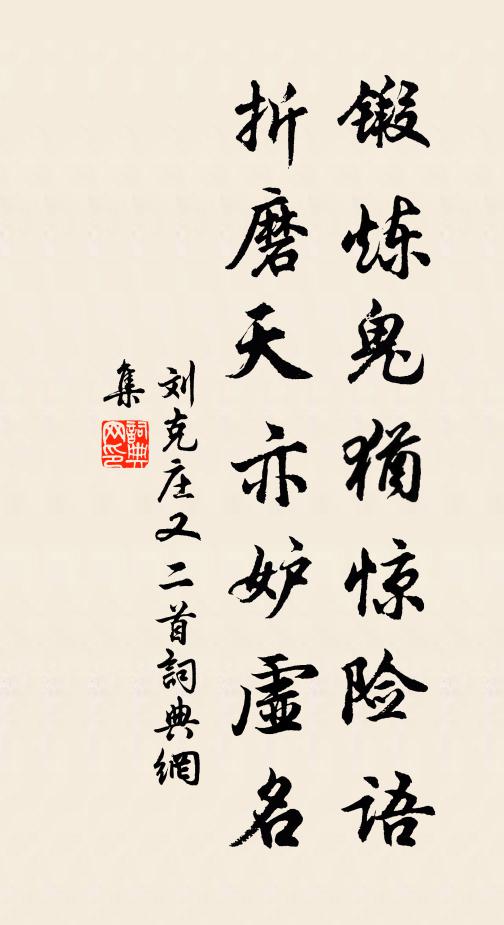 锻炼鬼犹惊险语
折磨天亦妒虚名
刘克庄又二首詞典網
集
詞典
网印